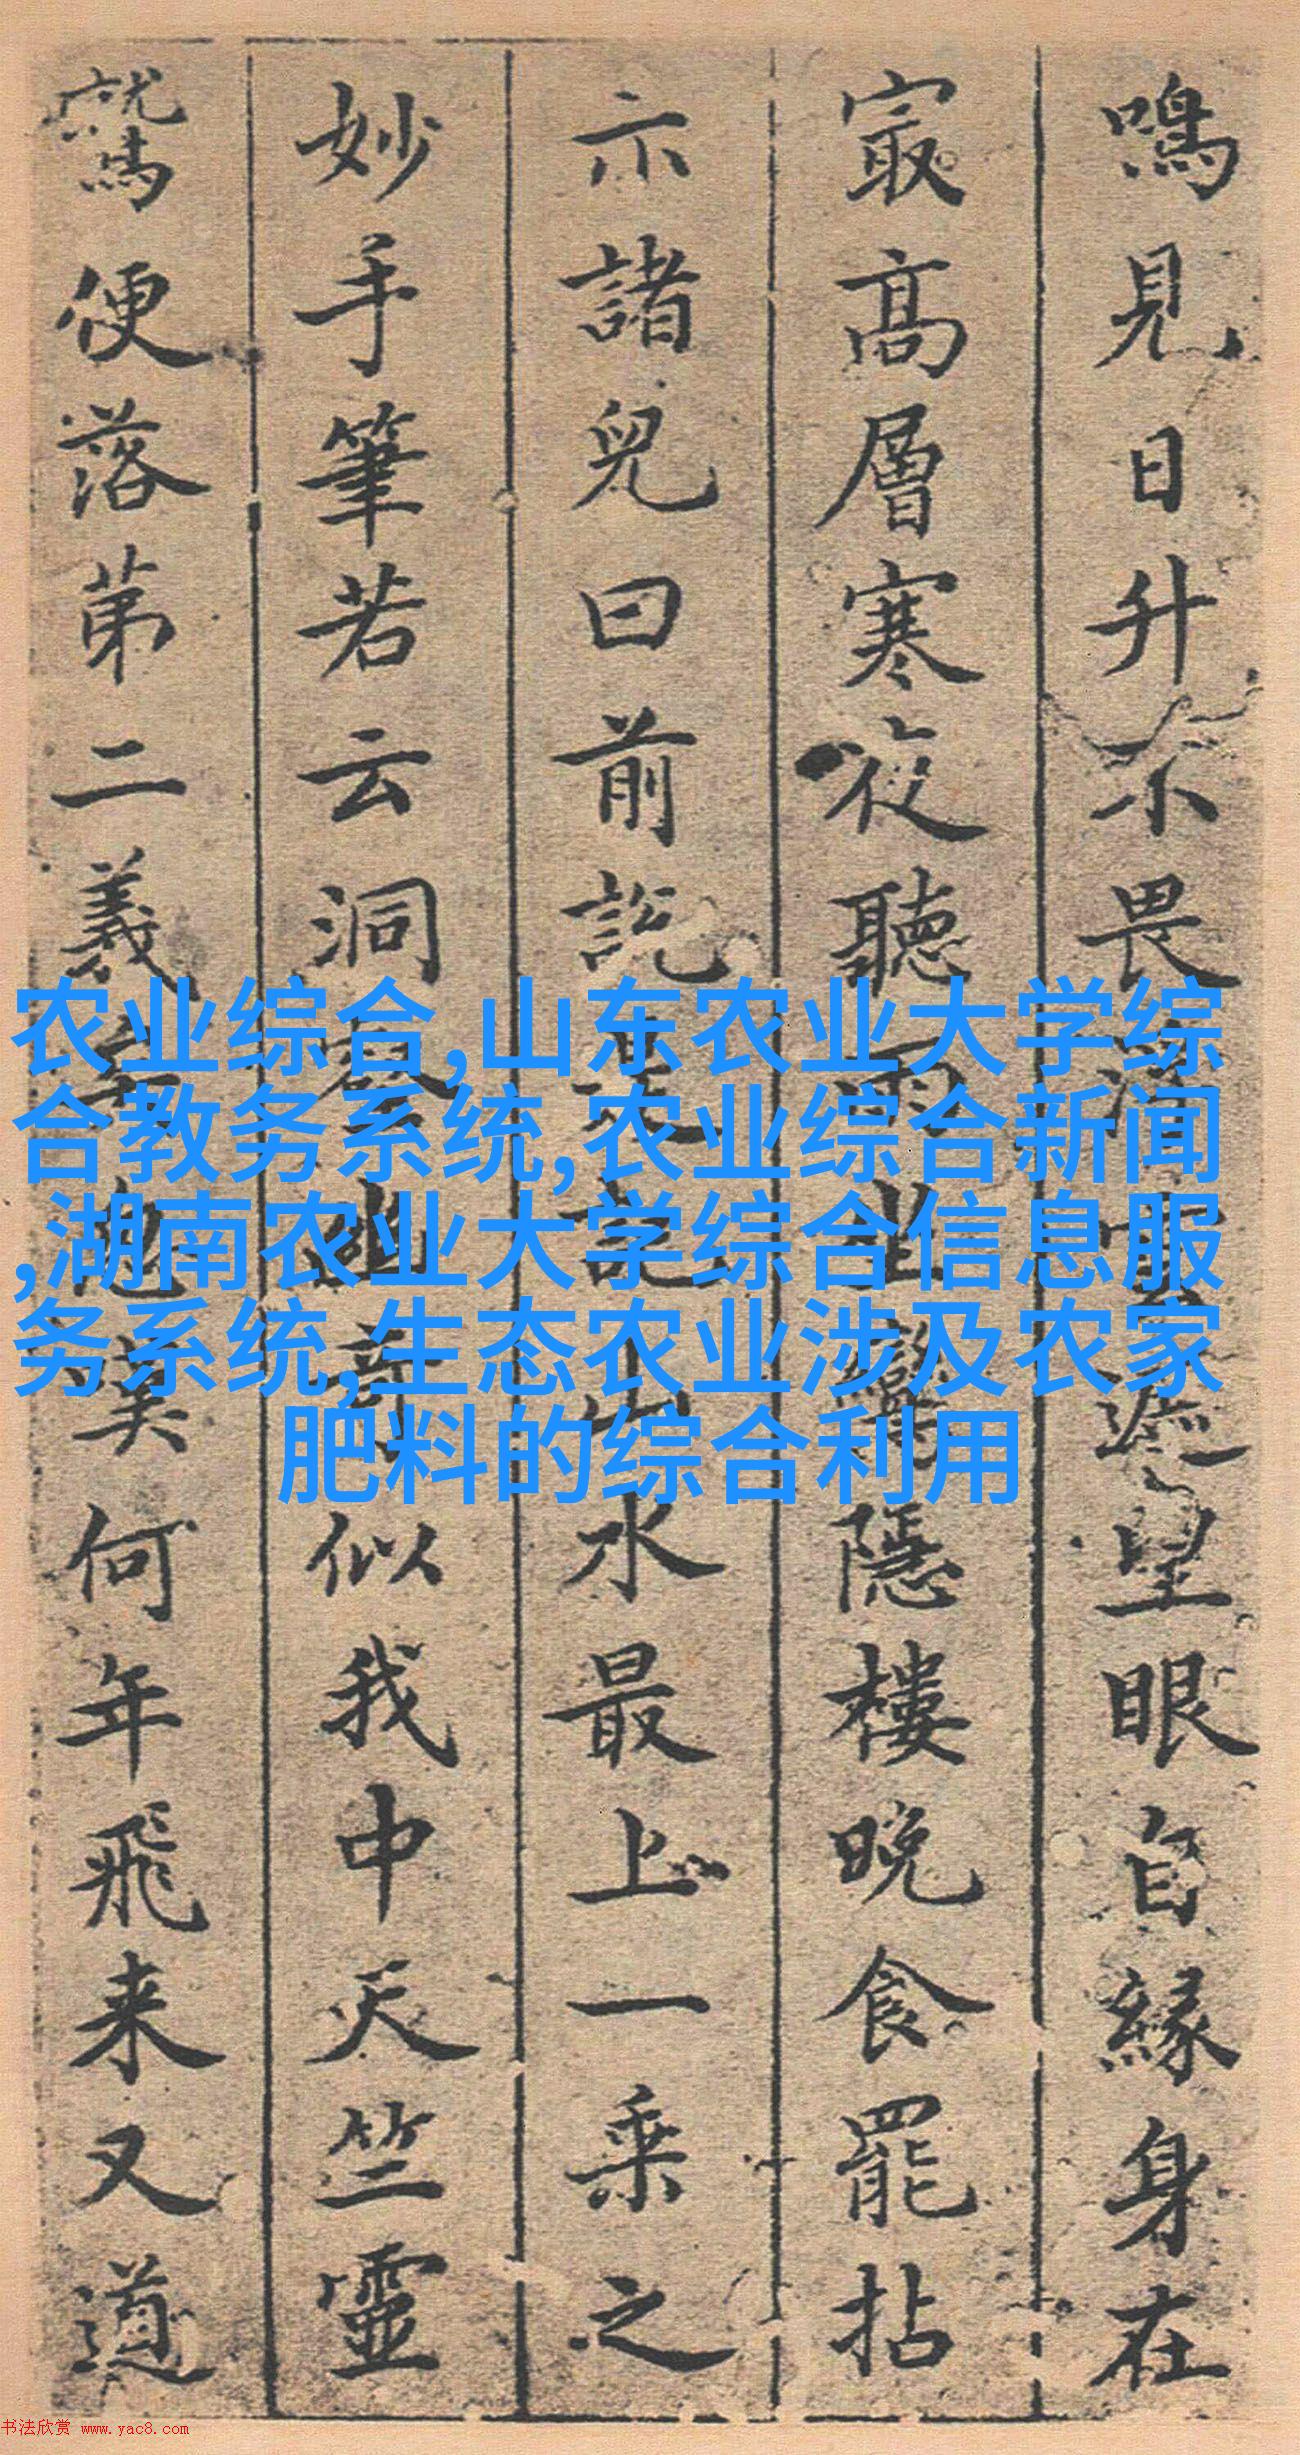 鳴見日升不畏浮雲遮望眼自緣身在
㝡高層寒夜聽雨坐隱樓晚食罷拈
示諸兒曰前說是說山水最上一乘之
妙手筆若云洞幽奇似我中天竺靈
鷲便落第二義何年飛来又道
农业综合,山东农业大学综
合教务系统,农业综合新闻
,湖南农业大学综合信息服
务系统,生态农业涉及农家
肥料的综合利用
书法欣赏 www.yac8.com